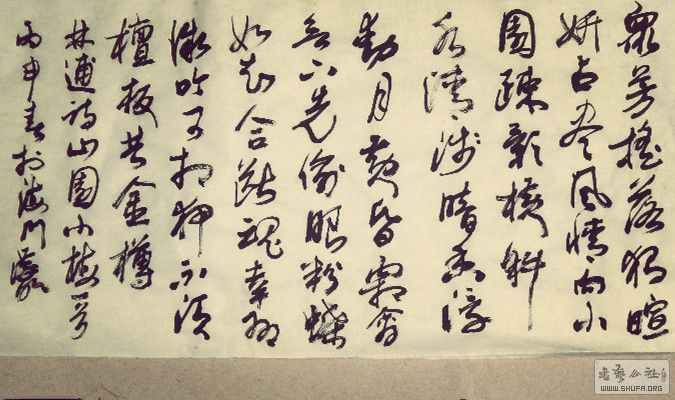 眾芳搖落独暄
妍占盡風情向小
園疎影橫斜
水清淺暗香浮
動月黃昏霜禽
欲下先偷眼粉蝶
如知合斷魂幸有
微吟可相狎不須
檀板共金樽
林逋詩山園小梅一首
丙申春於海門
書藝公社
WWW.SHUFA.ORG